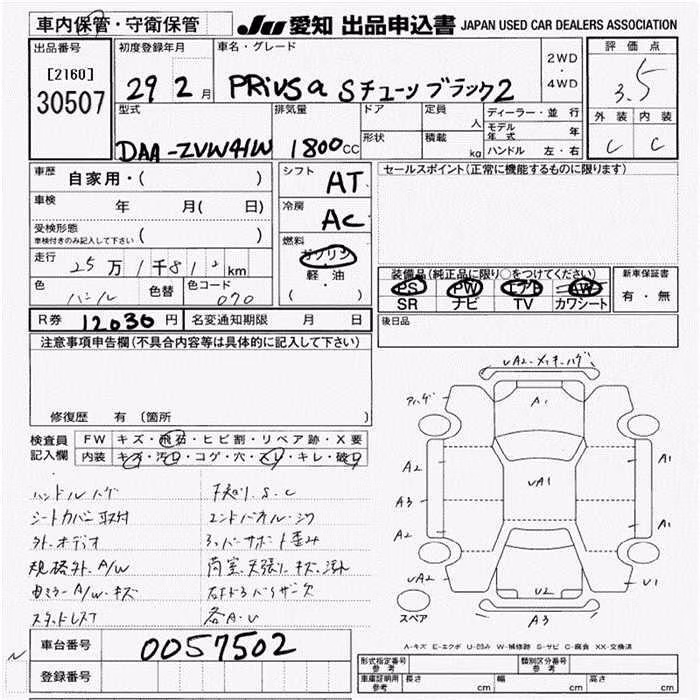 車内保管・守衛保管
JU 愛知 出品申込書 JAPAN USED CAR DEALERS ASSOCIATION
出品番号
[2160]
30507
初度登録年月
29 2月
車名・グレード
PRiUSα Sチューン ブラック2
2WD
・
4WD
評価点
3.5
外装 内装
C C
型式
DAA-ZVW41W
排気量
1800cc
ドア
形状
定員
人
積載
kg
ディーラー・並行
モデル年式 年
ハンドル 左・右
車歴
自家用・( )
車検 年 月( 日)
受検形態
車検付きのみ記入して下さい ( )
走行
25万1千812km
色
パール
色替
色コード
070
シフト
AT
冷房
AC
燃料
ガソリン
軽・油
( ・ )
セールスポイント(正常に機能するものに限ります)
装備品(純正品に限り○をつけてください)
PS PW エアB AW
SR ナビ TV カワシート
新車保証書
有・無
R券 12030円 名変通知期限 月 日
後日品
注意事項申告欄(不具合内容等は具体的に記入して下さい)
修復歴 有 〔箇所
検査員記入欄
FW キズ・飛石・ヒビ割・リペア跡・X要
内装 キズ・汚れ・コゲ・穴・スレ・キレ・破れ
ハンドルハゲ
シートカバー取付
外.オーディオ
規格外.A/W
A/W.キズ
下廻り.S.C
エンドパネル
荷室.天張り キズ.汚れ
各A.U
UA2
ハゲ
A1
A2
A3
A2
UA2
UA1
A1
A1
U1
U2
A3
スペア
A-キズ E-エクボ U-凹み W-補修跡 S-サビ C-腐食 XX-交換済
車台番号
0057502
登録番号
形式指定番号 参考
類別区分番号 参考
車庫証明用 参考 長さ cm 幅 cm 高さ cm